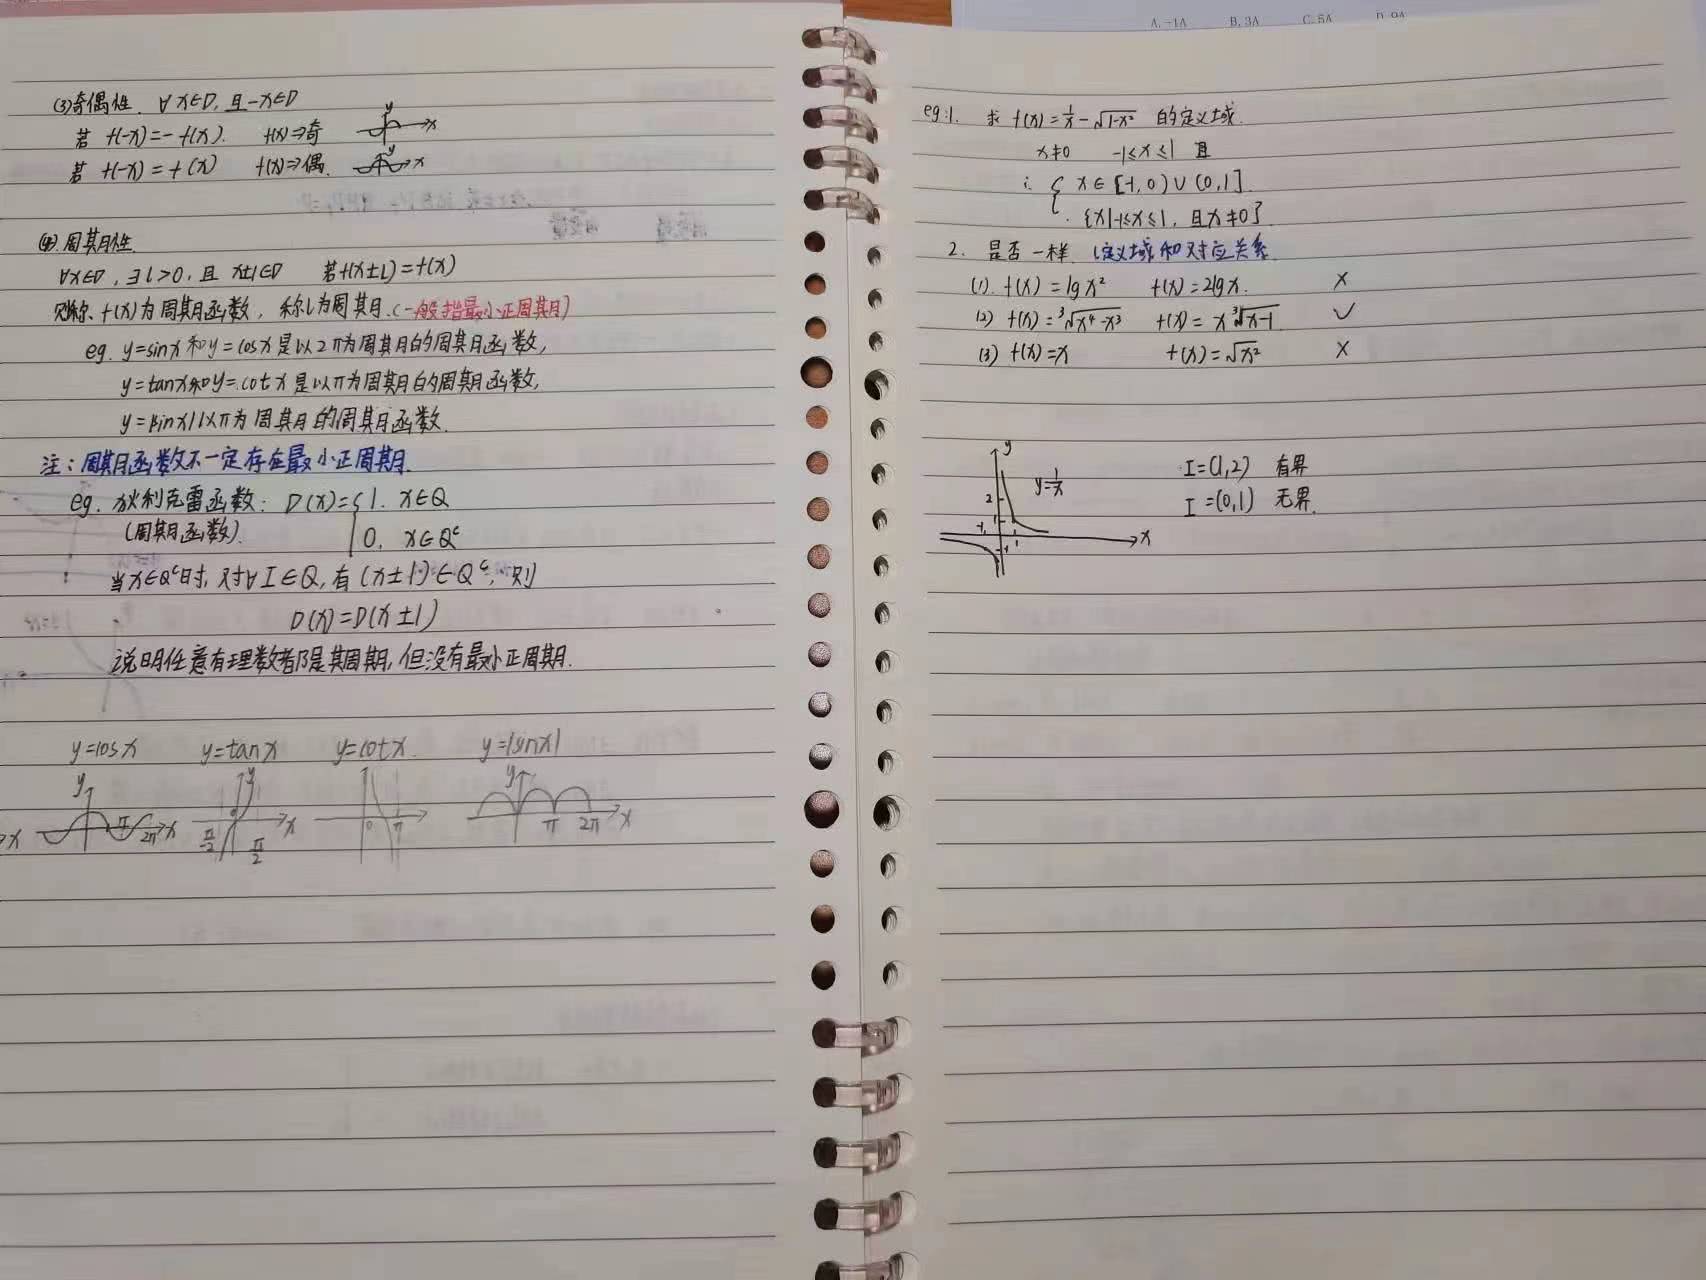 (3)奇偶性. ∀x∈D, 且-x∈D
若 f(-x)=-f(x). f(x)⇒奇 y x
若 f(-x)=f(x) f(x)⇒偶. y x
(4).周期性
∀x∈D, ∃l>0, 且 x±l∈D 若f(x±l)=f(x)
则称 f(x)为周期函数, 称l为周期.(一般指最小正周期)
eg. y=sinx和y=cosx是以2π为周期的周期函数,
y=tanx和y=cotx是以π为周期的周期函数,
y=|sinx|以π为周期的周期函数.
注:周期函数不一定存在最小正周期.
eg. 狄利克雷函数: D(x)={1. x∈Q
(周期函数). 0, x∈Qᶜ
当x∈Qᶜ时, 对∀I∈Q, 有(x±l)∈Qᶜ, 则
D(x)=D(x±l)
说明任意有理数都是其周期, 但没有最小正周期.
y=cosx y=tanx y=cotx. y=|sinx|
y y y
x π 2π x -π/2 0 π/2 x 0 π π 2π x
A. -1A B. 3A C. 5A D. 9A
eg:1. 求 f(x)=1/x-√1-x² 的定义域.
x≠0 -1≤x≤1 且
∴ { x∈[-1,0)∪(0,1].
{x|-1≤x≤1, 且x≠0}
2. 是否一样. (定义域和对应关系.
(1). f(x)=lgx² f(x)=2lgx. ×
(2) f(x)=³√x⁴-x³ f(x)=x³√x-1. ✓
(3) f(x)=x f(x)=√x² ×
y y=1/x I=(1,2) 有界
2 I=(0,1) 无界.
1 -1 1 x
-1